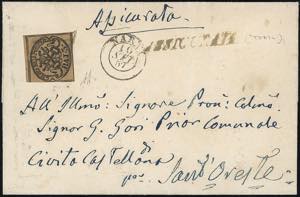 Assicurata
NARNI
10
SET
57
ASSICURATA
All' Illmo: Signore Pron: Colmo:
Signor G. Gori Prior Comunale
di
Civita Castellana
per Sant'Oreste